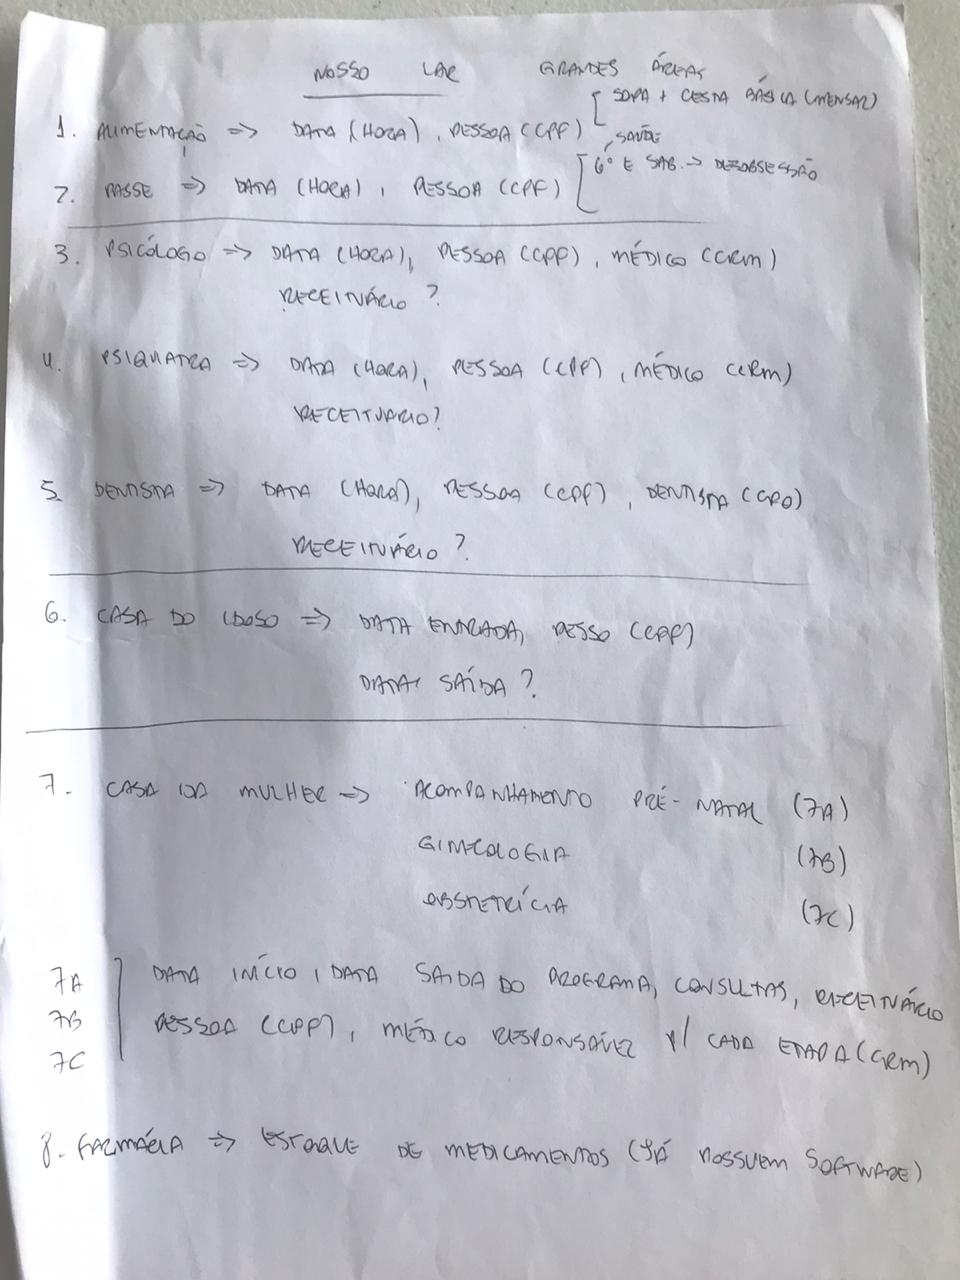 NOSSO LAR GRANDES ÁREAS
SOPA + CESTA BÁSICA (MENSAL)
1. ALIMENTAÇÃO => DATA (HORA), PESSOA (CPF)
SAÚDE
6º E SAB. -> DESOBSESSÃO
2. PASSE => DATA (HORA), PESSOA (CPF)
3. PSICÓLOGO => DATA (HORA), PESSOA (CPF), MÉDICO (CRM)
RECEITUÁRIO?
4. PSIQUATRA => DATA (HORA), PESSOA (CPF), MÉDICO (CRM)
RECEITUARIO?
5. DENTISTA => DATA (HORA), PESSOA (CPF), DENTISTA (CRO)
RECEITUÁRIO?
6. CASA DO IDOSO => DATA ENTRADA, PESSO (CPF)
DATA SAÍDA?
7. CASA DA MULHER => ACOMPANHAMENTO PRÉ-NATAL (7A)
GINECOLOGIA (7B)
OBSTETRÍCIA (7C)
7A DATA INÍCIO, DATA SAIDA DO PROGRAMA, CONSULTAS, RECEITUÁRIO
7B PESSOA (CPF), MÉDICO RESPONSÁVEL P/ CADA ETAPA (CRM)
7C
8. FARMÁCIA => ESTOQUE DE MEDICAMENTOS (JÁ POSSUEM SOFTWARE)